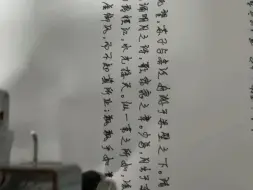 望,苏子与客泛舟游于赤壁之下。清
诵明月之诗,歌窈窕之章。少焉,月出于
横江,水光接天。纵一苇之所如,凌
虚御风,而不知其所止;飘飘乎